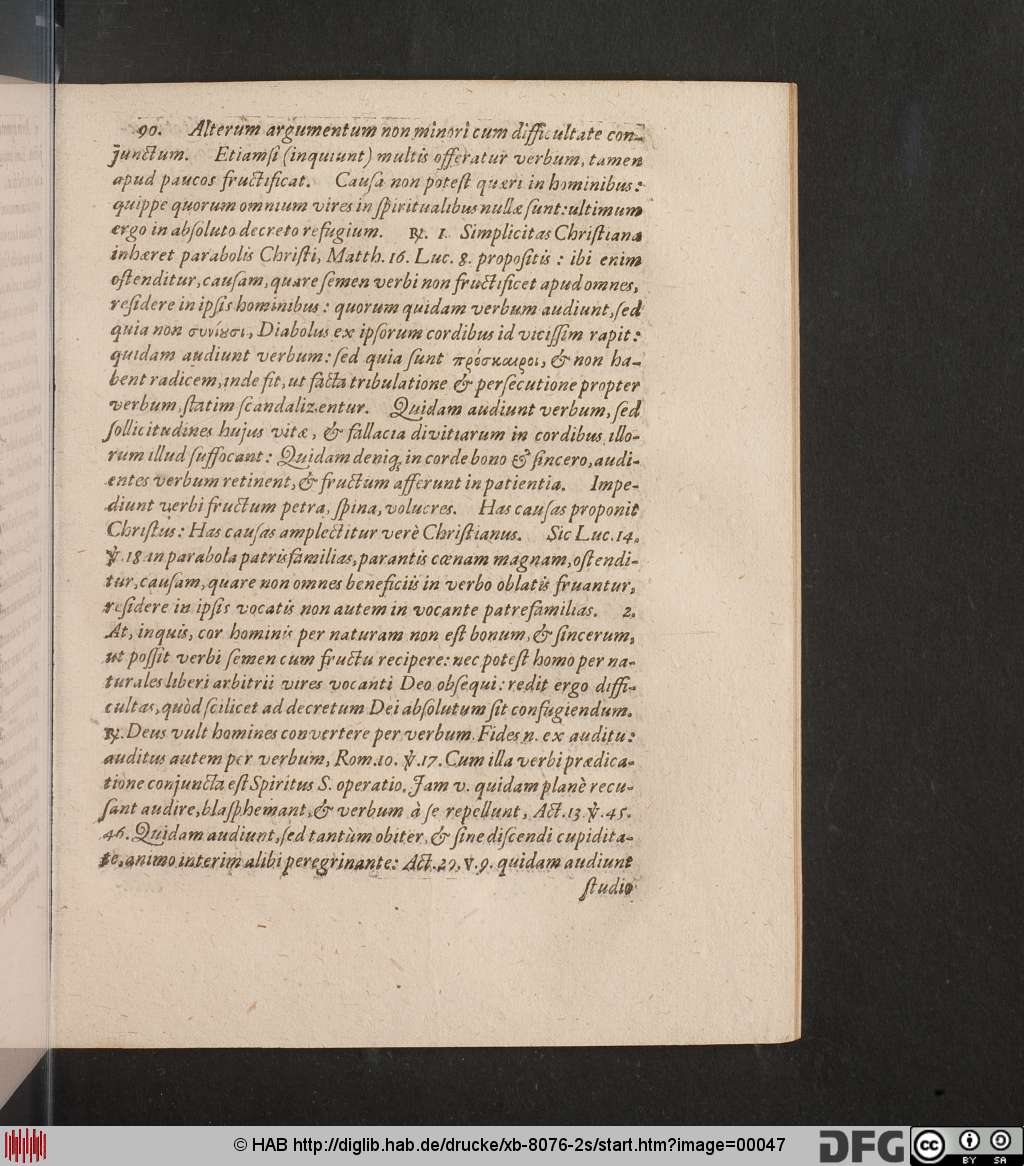 90. Alterum argumentum non minori cum difficultate con-
junctum. Etiamsi (inquiunt) multis offeratur verbum, tamen
apud paucos fructificat. Causa non potest quæri in hominibus:
quippe quorum omnium vires in spiritualibus nullæ sunt: ultimum
ergo in absoluto decreto refugium. ℞. 1. Simplicitas Christiana
inhæret parabolis Christi, Matth. 16. Luc. 8. propositis: ibi enim
ostenditur, causam, quare semen verbi non fructificet apud omnes,
residere in ipsis hominibus: quorum quidam verbum audiunt, sed
quia non συνίȣσι, Diabolus ex ipsorum cordibus id vicissim rapit:
quidam audiunt verbum: sed quia sunt πρόσκαιροι, & non ha-
bent radicem, inde fit, ut facta tribulatione & persecutione propter
verbum, statim scandalizentur. Quidam audiunt verbum, sed
sollicitudines hujus vitæ, & fallacia divitiarum in cordibus illo-
rum illud suffocant: Quidam deniq; in corde bono & sincero, audi-
entes verbum retinent, & fructum afferunt in patientia. Impe-
diunt verbi fructum petra, spina, volucres. Has causas proponit
Christus: Has causas amplectitur verè Christianus. Sic Luc. 14.
℣. 18 in parabola patrisfamilias, parantis cœnam magnam, ostendi-
tur, causam, quare non omnes beneficiis in verbo oblatis fruantur,
residere in ipsis vocatis non autem in vocante patrefamilias. 2.
At, inquis, cor hominis per naturam non est bonum, & sincerum,
ut possit verbi semen cum fructu recipere: nec potest homo per na-
turales liberi arbitrii vires vocanti Deo obsequi: redit ergo diffi-
cultas, quòd scilicet ad decretum Dei absolutum sit confugiendum.
℞. Deus vult homines convertere per verbum. Fides n. ex auditu:
auditus autem per verbum, Rom. 10. ℣. 17. Cum illa verbi prædica-
tione conjuncta est Spiritus S. operatio. Jam v. quidam planè recu-
sant audire, blasphemant, & verbum à se repellunt, Act. 13. ℣. 45.
46. Quidam audiunt, sed tantùm obiter, & sine discendi cupidita-
te, animo interim alibi peregrinante: Act. 29. v. 9. quidam audiunt
studio
© HAB http://diglib.hab.de/drucke/xb-8076-2s/start.htm?image=00047
DFG
cc BY SA